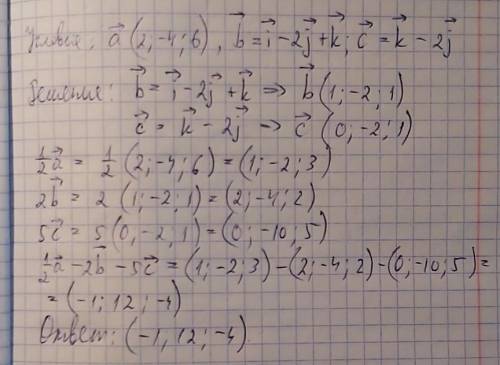 Условия: a⃗ (2; -4; 6), b⃗ = i⃗ - 2j⃗ + k⃗; c⃗ = k⃗ - 2j⃗
Решение: b⃗ = i⃗ - 2j⃗ + k⃗ => b⃗ (1; -2; 1)
c⃗ = k⃗ - 2j⃗ -> c⃗ (0; -2; 1)
1/2 a⃗ = 1/2 (2; -4; 6) = (1; -2; 3)
2b⃗ = 2 (1; -2; 1) = (2; -4; 2)
5c⃗ = 5(0, -2; 1) = (0; -10; 5)
1/2 a⃗ - 2b⃗ - 5c⃗ = (1; -2; 3) - (2; -4; 2) - (0; -10; 5) =
= (-1; 12; -4)
Ответ: (-1, 12; -4)